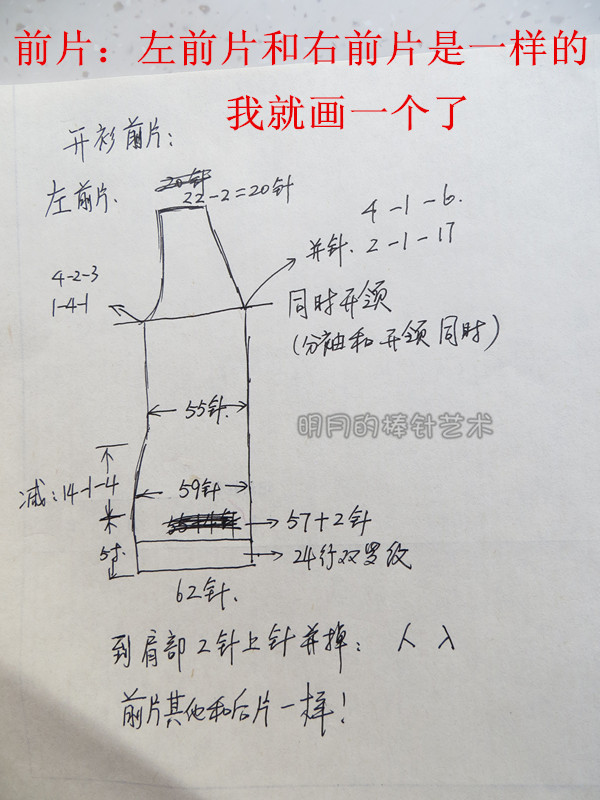 前片：左前片和右前片是一样的
我就画一个了
开衫前片：
左前片.
22-2=20针
4-1-6.
并针. 2-1-17
4-2-3
1-4-1
同时开领
(分袖和开领同时)
55针.
明月的棒针艺术
减：14-1-4
59针
57+2针
24行双罗纹
62针.
到肩部2针上针并掉：人 入
前片其他和后片一样！